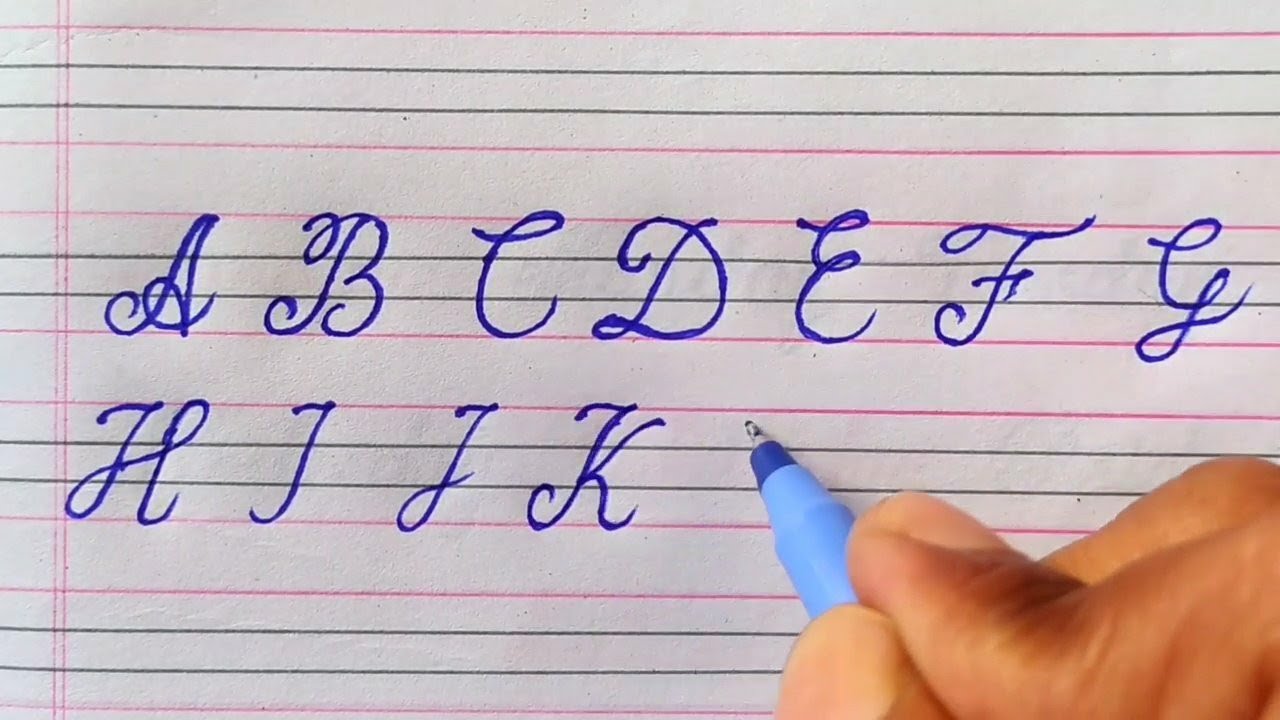 A B C D E F G
H I J K